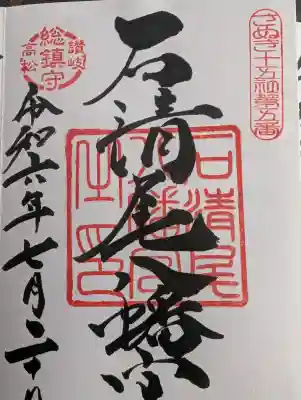 さぬき十五社第五番
石清尾八幡宮
讃岐
総鎮守
高松
石清尾
八幡宮
之印
令和六年七月二十八日